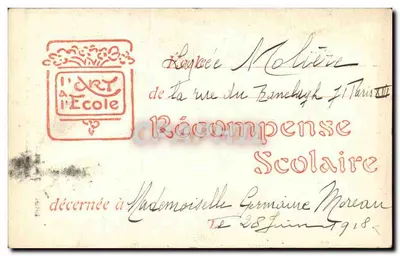 l'ART
à
l'École
Lycée Molière
de la rue du Ranelagh 71 Paris XVI
Récompense
Scolaire
décernée à Mademoiselle Germaine Moreau
Le 28 Juin 1918